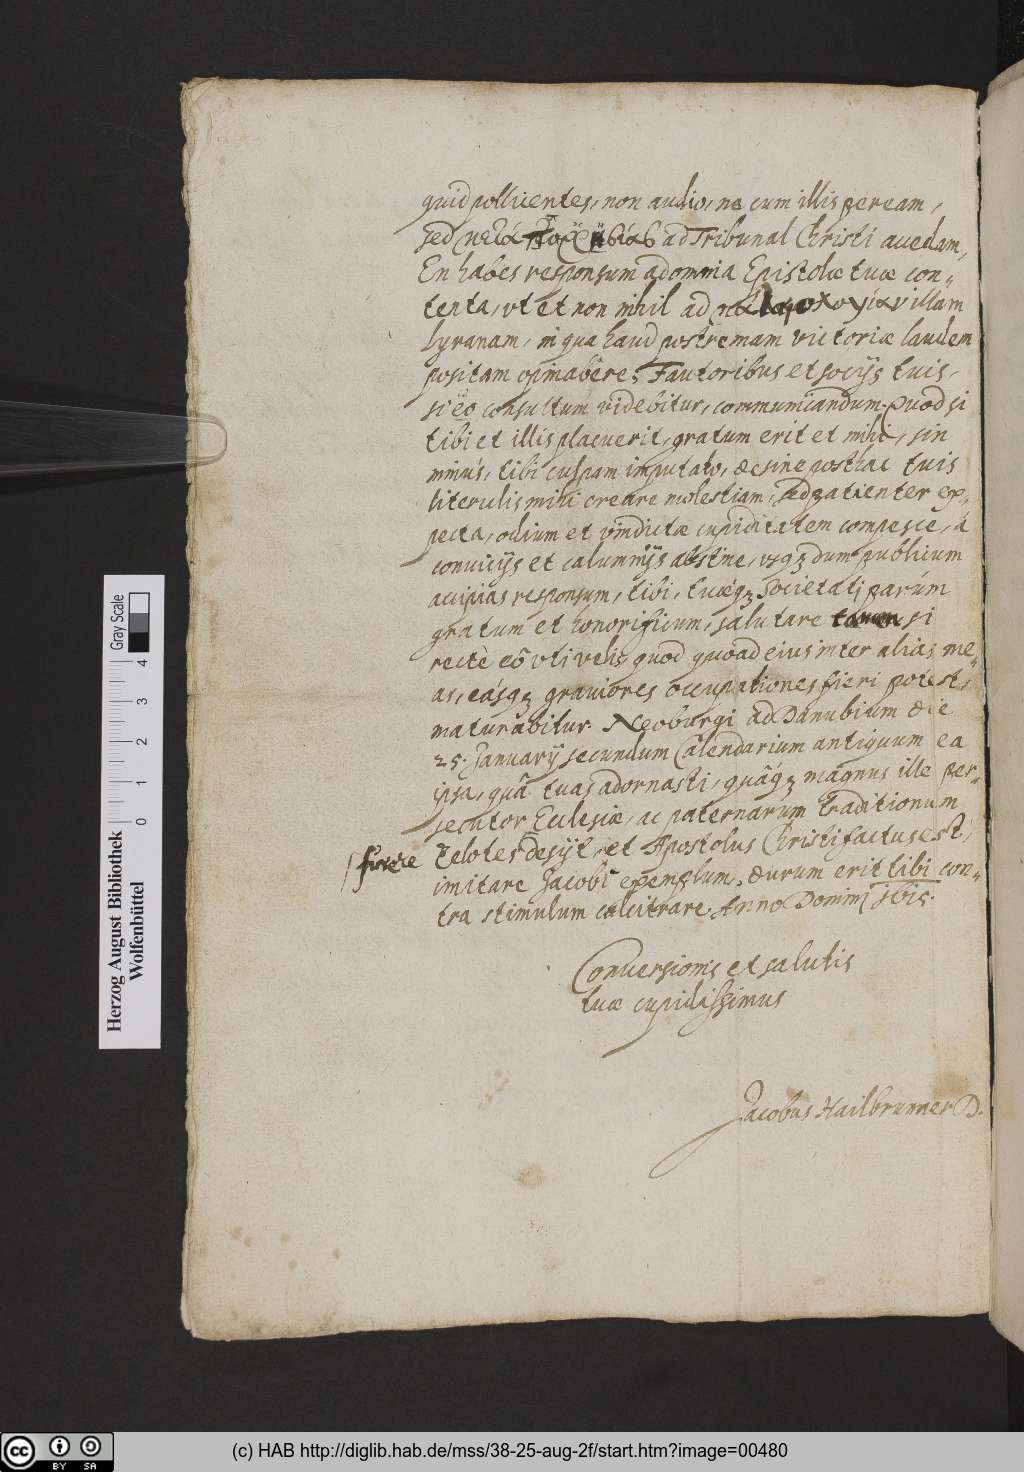 quid pollicentes, non audio, ne cum illis peream,
sed μετὰ παῤῥησίας ad Tribunal Christi accedam,
En habes responsum ad omnia Epistolæ tuæ con-
tenta, vt et non nihil ad illam
lyranam, in qua haud postremam victoriæ laudem
positam Fautoribus et socijs tuis,
si ëo consultum videbitur, communicandum. Quod si
tibi et illis placuerit, gratum erit et mihi, sin
minùs, tibi culpam imputato, desine posthac tuis
literulis mihi creare molestiam, sed patienter ex-
pecta, odium et vindictæ cupiditatem compesce, à
conuicijs et calumnijs abstine, vsqꝫ dum publicum
accipias responsum, tibi, tuæqꝫ Societati parùm
gratum et honorificum, salutare tamen, si
rectè eô vti velis, quod quoad eius inter alias me-
as, eásqꝫ grauiores occupationes fieri potest,
maturabitur. Neoburgi ad Danubium die
25. Januarij secundum Calendarium antiquum ea
ipsa, quâ tuas adornasti, quâqꝫ magnus ille per-
secutor Ecclesiæ, ac paternarum traditionum
Zelotes desijt, et Apostolus Christi factus est,
imitare Jacobi exemplum, durum erit tibi con-
tra stimulum calcitrare. Anno Domini
Conuersionis et salutis
tuæ cupidissimus
Jacobus Hailbrunner D.
Herzog August Bibliothek
Wolfenbüttel
Gray Scale
0 1 2 3 4
cc BY SA
(c) HAB http://diglib.hab.de/mss/38-25-aug-2f/start.htm?image=00480